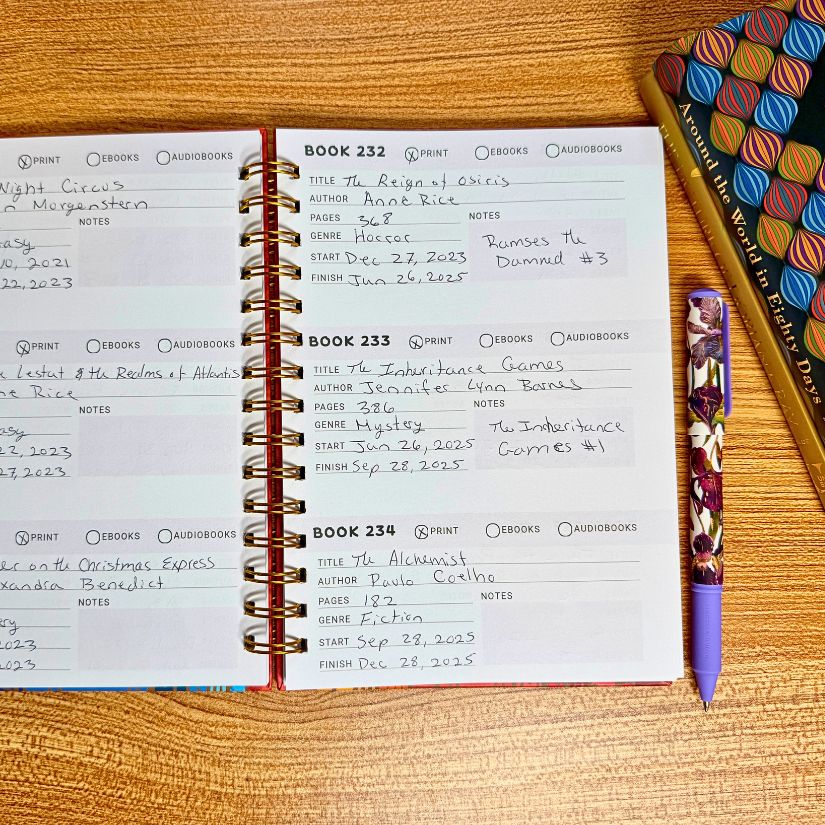 PRINT EBOOKS AUDIOBOOKS
Night Circus
Morgenstern
NOTES
10, 2021
22, 2023
PRINT EBOOKS AUDIOBOOKS
Lestat & the Realms of Atlantis
Rice
NOTES
22, 2023
27, 2023
PRINT EBOOKS AUDIOBOOKS
on the Christmas Express
Benedict
NOTES
2023
2023
BOOK 232 PRINT EBOOKS AUDIOBOOKS
TITLE The Reign of Osiris
AUTHOR Anne Rice
PAGES 368 NOTES
GENRE Horror
START Dec 27, 2023
FINISH Jun 26, 2025
Ramses the
Damned #3
BOOK 233 PRINT EBOOKS AUDIOBOOKS
TITLE The Inheritance Games
AUTHOR Jennifer Lynn Barnes
PAGES 386 NOTES
GENRE Mystery
START Jun 26, 2025
FINISH Sep 28, 2025
The Inheritance
Games #1
BOOK 234 PRINT EBOOKS AUDIOBOOKS
TITLE The Alchemist
AUTHOR Paulo Coelho
PAGES 182 NOTES
GENRE Fiction
START Sep 28, 2025
FINISH Dec 28, 2025
Around the World in Eighty Days